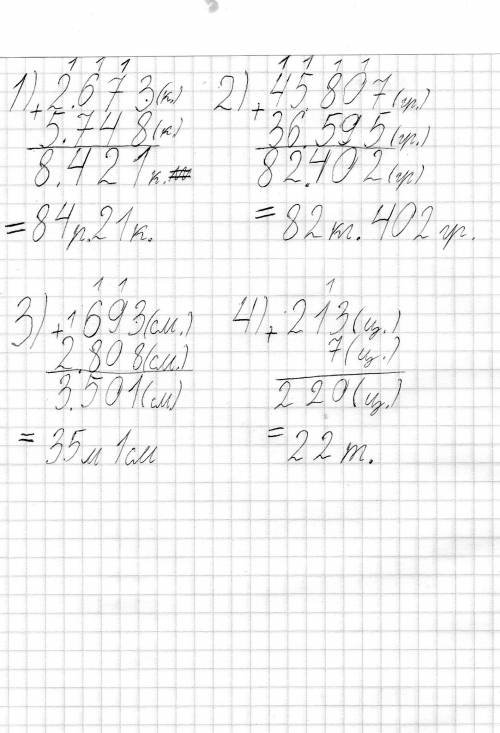 1 1 1
1) + 2.673 (к.)
5.748 (к.)
8.421 к.
= 84 р. 21 к.
1 1 1 1
2) + 45.807 (гр.)
36.595 (гр.)
82.402 (гр)
= 82 кг. 402 гр.
1 1
3) + 1693 (см.)
2.808 (см.)
3.501 (см)
= 35 м 1 см
1
4) + 213 (ц.)
7 (ц.)
220 (ц.)
= 22 т.